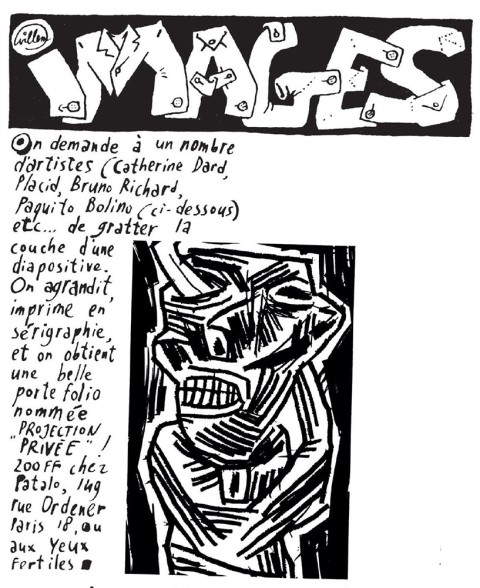 Willem
IMAGES
On demande à un nombre
d'artistes (Catherine Dard,
Placid, Bruno Richard,
Paquito Bolino (ci-dessous)
etc... de gratter la
couche d'une
diapositive.
On agrandit,
imprime en
sérigraphie,
et on obtient
une belle
porte folio
nommée
"PROJECTION
PRIVÉE" !
200FF chez
Patalo, 149
rue Ordener
Paris 18, ou
aux Yeux
Fertiles